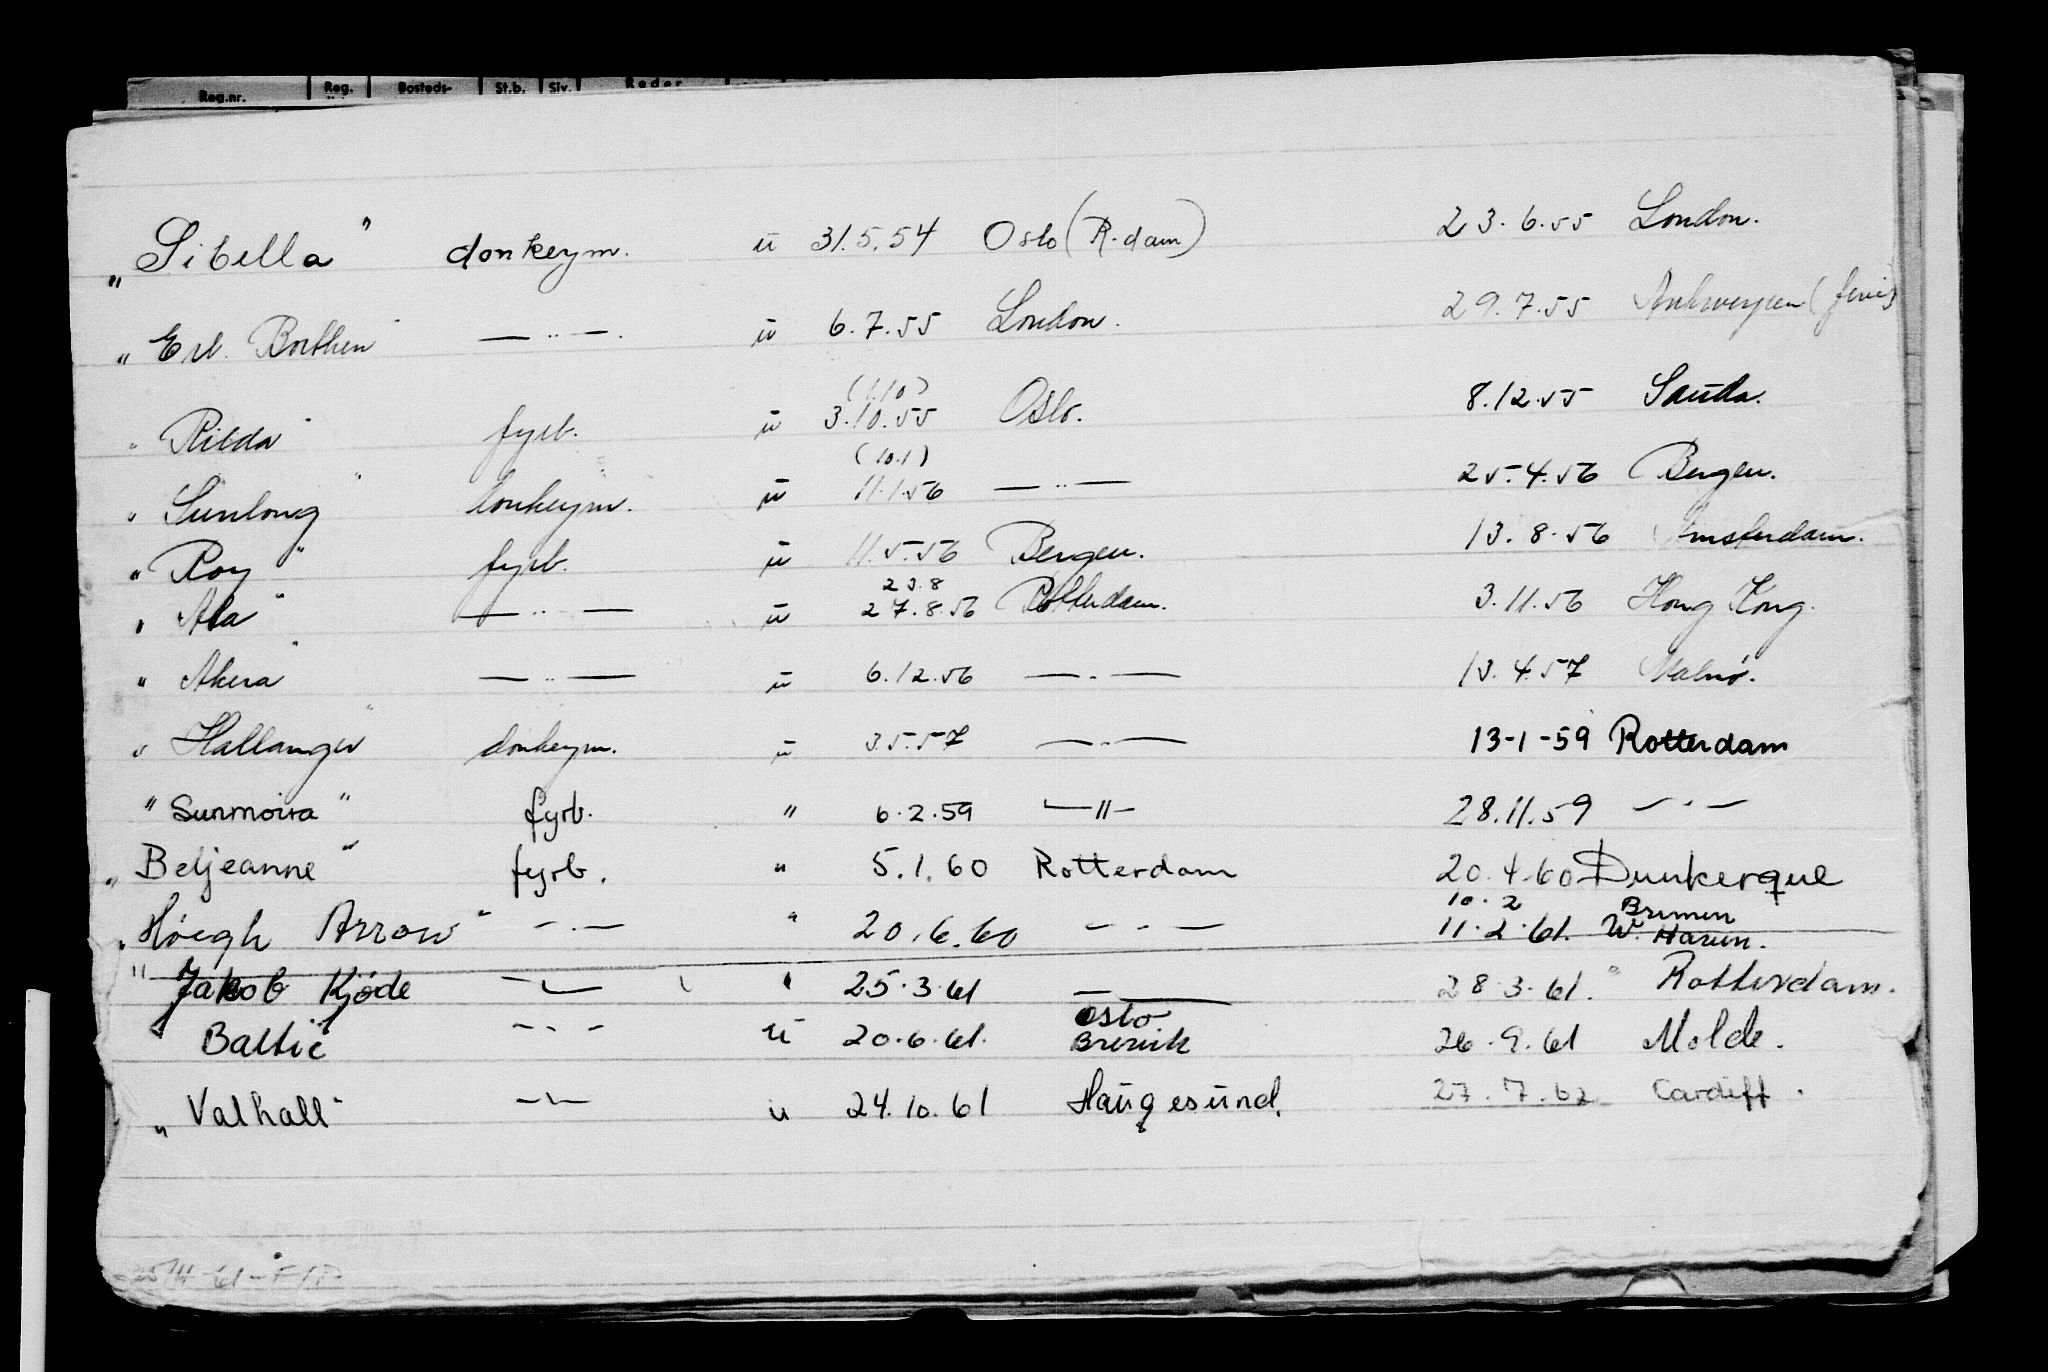 Reg.nr. Reg. Bosteds- St.b. Siv. Reder
„Sibella" donkeym. u 31.5.54 Oslo (R.dam) 23.6.55 London.
„Erl. Borthen" — „ — . u 6.7.55 London. 29.7.55 Antwerpen (ferie)
(1.10)
„Rilda" fyrb. u 3.10.55 Oslo. 8.12.55 Sauda.
(10.1)
„Sunlong" donkeym. u 11.1.56 — „ — 25.4.56 Bergen.
„Roy" fyrb. u 11.5.56 Bergen. 13.8.56 Amsterdam.
23.8
„Ala" — „ — u 27.8.56 Rotterdam. 3.11.56 Hong Kong.
„Akera" — „ — u 6.12.56 — „ — 13.4.57 Malmö.
„Hallanger" donkeym. u 3.5.57 — „ — 13-1-59 Rotterdam
"Sunmoira" fyrb. " 6.2.59 — " — 28.11.59 — " —
„Beljeanne" fyrb. " 5.1.60 Rotterdam 20.4.60 Dunkerque
10.2 Bremen
„Höegh Arrow" — " — " 20.6.60 — " — 11.2.61. W. Havn.
" Jakob Kjøde — " — " 25.3.61 — 28.3.61. " Rotterdam.
Oslo
" Baltic — " — u 20.6.61. Brevik 26.9.61 Molde.
„Valhall" — " — u 24.10.61 Haugesund. 27.7.62 Cardiff.